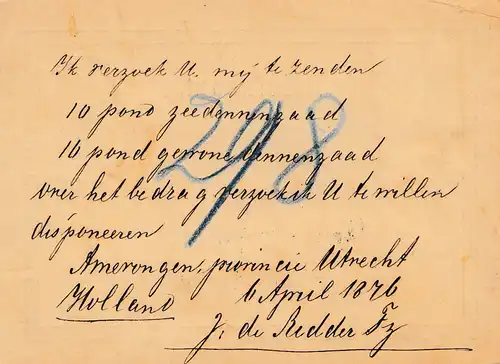 Ik verzoek U. mij te zenden
10 pond zeedennenzaad
10 pond gewone dennenzaad
over het bedrag verzoek ik U te willen
disponeeren
Amerongen, provincie Utrecht
Holland 6 April 1876
J. de Ridder Fz
298